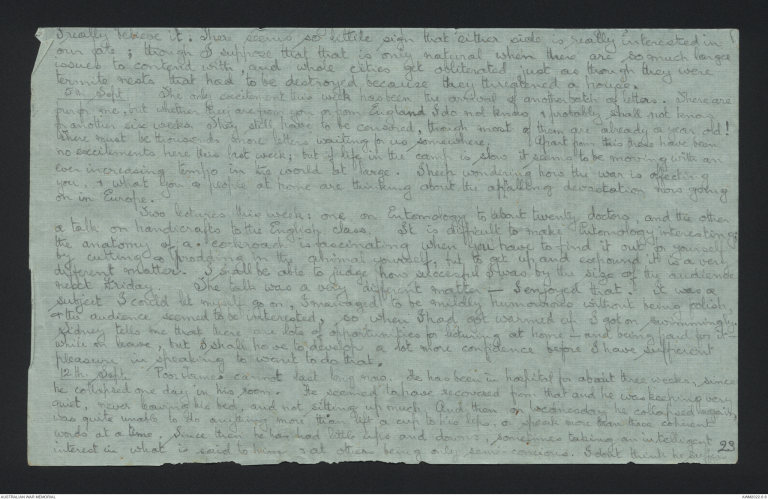 I really believe it. There seems so little sign that either side is really interested in
our fate; though I suppose that that is only natural when there are so much larger
issues to contend with, and whole cities get obliterated just as though they were
termite nests that had to be destroyed because they threatened a house.
5th Sept. The only excitement this week has been the arrival of another batch of letters. There are
for me, but whether they are from you or from England I do not know, & probably shall not know
for another six weeks. They still have to be censored, though most of them are already a year old!
There must be thousands more letters waiting for us somewhere. Apart from this there have been
no excitements here this last week; but if life in the camp is slow it seems to be moving with an
ever increasing tempo in the world at large. I keep wondering how the war is affecting
you, & what you & people at home are thinking about the appalling devastation now going
on in Europe.
Two lectures this week: one on Entomology to about twenty doctors, and the other
a talk on handicrafts to the English class. It is difficult to make Entomology interesting;
the anatomy of a cockroach is fascinating when you have to find it out for yourself
by cutting & prodding in the animal yourself, but to get up and expound it is a very
different matter. I shall be able to judge how successful I was by the size of the audience
next Friday. The talk was a very different matter — I enjoyed that! it was a
subject I could let myself go on, I managed to be mildly humourous without being foolish,
& the audience seemed to be interested, so when I had got warmed up I got on swimmingly.
Sidney tells me that there are lots of opportunities for lecturing at home — and being paid for it —
while on leave, but I shall have to develop a lot more confidence before I have sufficient
pleasure in speaking to want to do that.
12th Sept. Poor James cannot last long now. He has been in hospital for about three weeks, since
he collapsed one day in his room. He seemed to have recovered from that and he was keeping very
quiet, never leaving his bed, and not sitting up much. And then on Wednesday he collapsed again,
was quite unable to do anything more than lift a cup to his lips, or speak more than three coherent
words at a time. Since then he has had little ups and downs, sometimes taking an intelligent
interest in what is said to him, & at others being only semi-conscious. I don't think he suffers
23
AUSTRALIAN WAR MEMORIAL